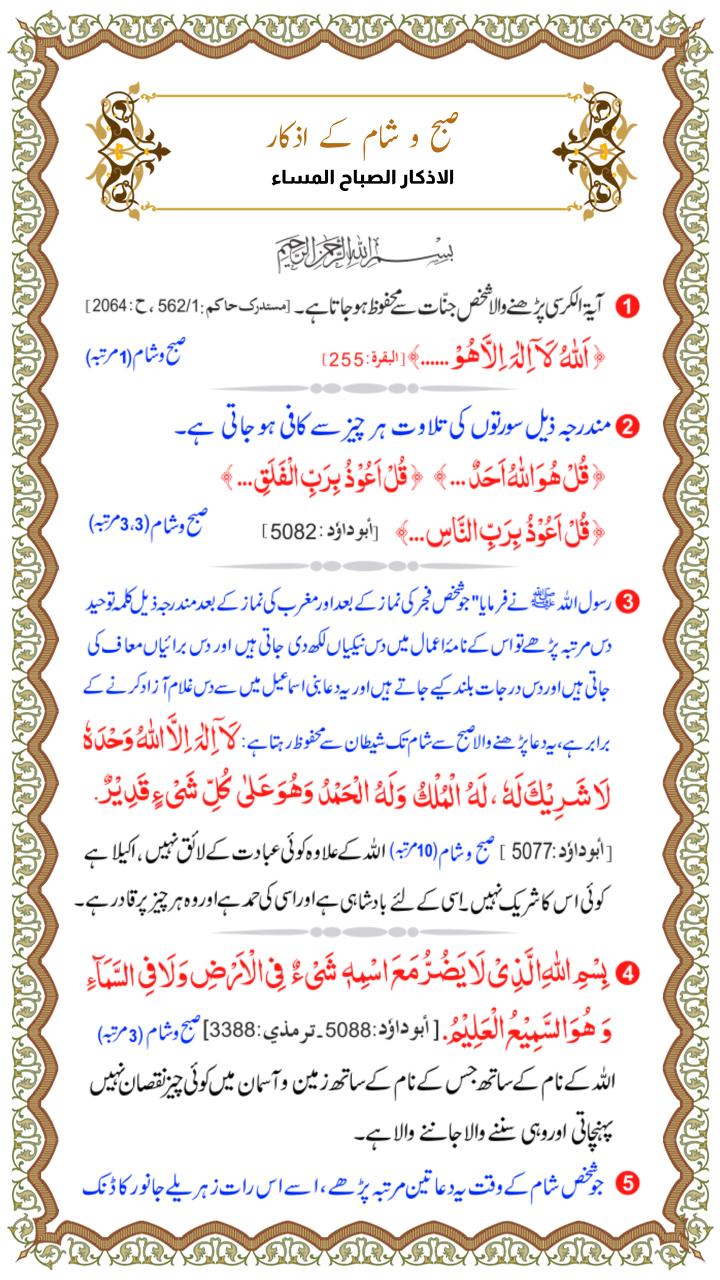 صبح و شام کے اذکار
الاذكار الصباح المساء
بسم الله الرحمن الرحيم
1 آیۃ الکرسی پڑھنے والا شخص جنّات سے محفوظ ہو جاتا ہے۔ [مستدرک حاکم: 562/1 ، ح: 2064]
﴿اَللّٰهُ لَآ اِلٰهَ اِلَّا هُوَ ......﴾ [البقرة: 255] صبح و شام (1 مرتبہ)
2 مندرجہ ذیل سورتوں کی تلاوت ہر چیز سے کافی ہو جاتی ہے۔
﴿قُلْ هُوَ اللّٰهُ اَحَدٌ ...﴾ ﴿قُلْ اَعُوْذُ بِرَبِّ الْفَلَقِ ...﴾
﴿قُلْ اَعُوْذُ بِرَبِّ النَّاسِ ...﴾ [أبو داؤد: 5082] صبح و شام (3،3 مرتبہ)
3 رسول اللہ ﷺ نے فرمایا" جو شخص فجر کی نماز کے بعد اور مغرب کی نماز کے بعد مندرجہ ذیل کلمہ توحید
دس مرتبہ پڑھے تو اس کے نامۂ اعمال میں دس نیکیاں لکھ دی جاتی ہیں اور دس برائیاں معاف کی
جاتی ہیں اور دس درجات بلند کیے جاتے ہیں اور یہ دعا بنی اسماعیل میں سے دس غلام آزاد کرنے کے
برابر ہے، یہ دعا پڑھنے والا صبح سے شام تک شیطان سے محفوظ رہتا ہے: لَآ اِلٰهَ اِلَّا اللّٰهُ وَحْدَهٗ
لَا شَرِيْكَ لَهٗ ، لَهُ الْمُلْكُ وَلَهُ الْحَمْدُ وَهُوَ عَلٰى كُلِّ شَىْءٍ قَدِيْرٌ.
[أبو داؤد: 5077 ] صبح و شام (10 مرتبہ) اللہ کے علاوہ کوئی عبادت کے لائق نہیں، اکیلا ہے
کوئی اس کا شریک نہیں۔ اسی کے لئے بادشاہی ہے اور اسی کی حمد ہے اور وہ ہر چیز پر قادر ہے۔
4 بِسْمِ اللّٰهِ الَّذِىْ لَا يَضُرُّ مَعَ اسْمِهٖ شَىْءٌ فِى الْاَرْضِ وَلَا فِى السَّمَآءِ
وَ هُوَ السَّمِيْعُ الْعَلِيْمُ. [ أبو داؤد: 5088 ۔ ترمذي: 3388] صبح و شام (3 مرتبہ)
اللہ کے نام کے ساتھ جس کے نام کے ساتھ زمین و آسمان میں کوئی چیز نقصان نہیں
پہنچاتی اور وہی سننے والا جاننے والا ہے۔
5 جو شخص شام کے وقت یہ دعا تین مرتبہ پڑھے، اسے اس رات زہریلے جانور کا ڈنک